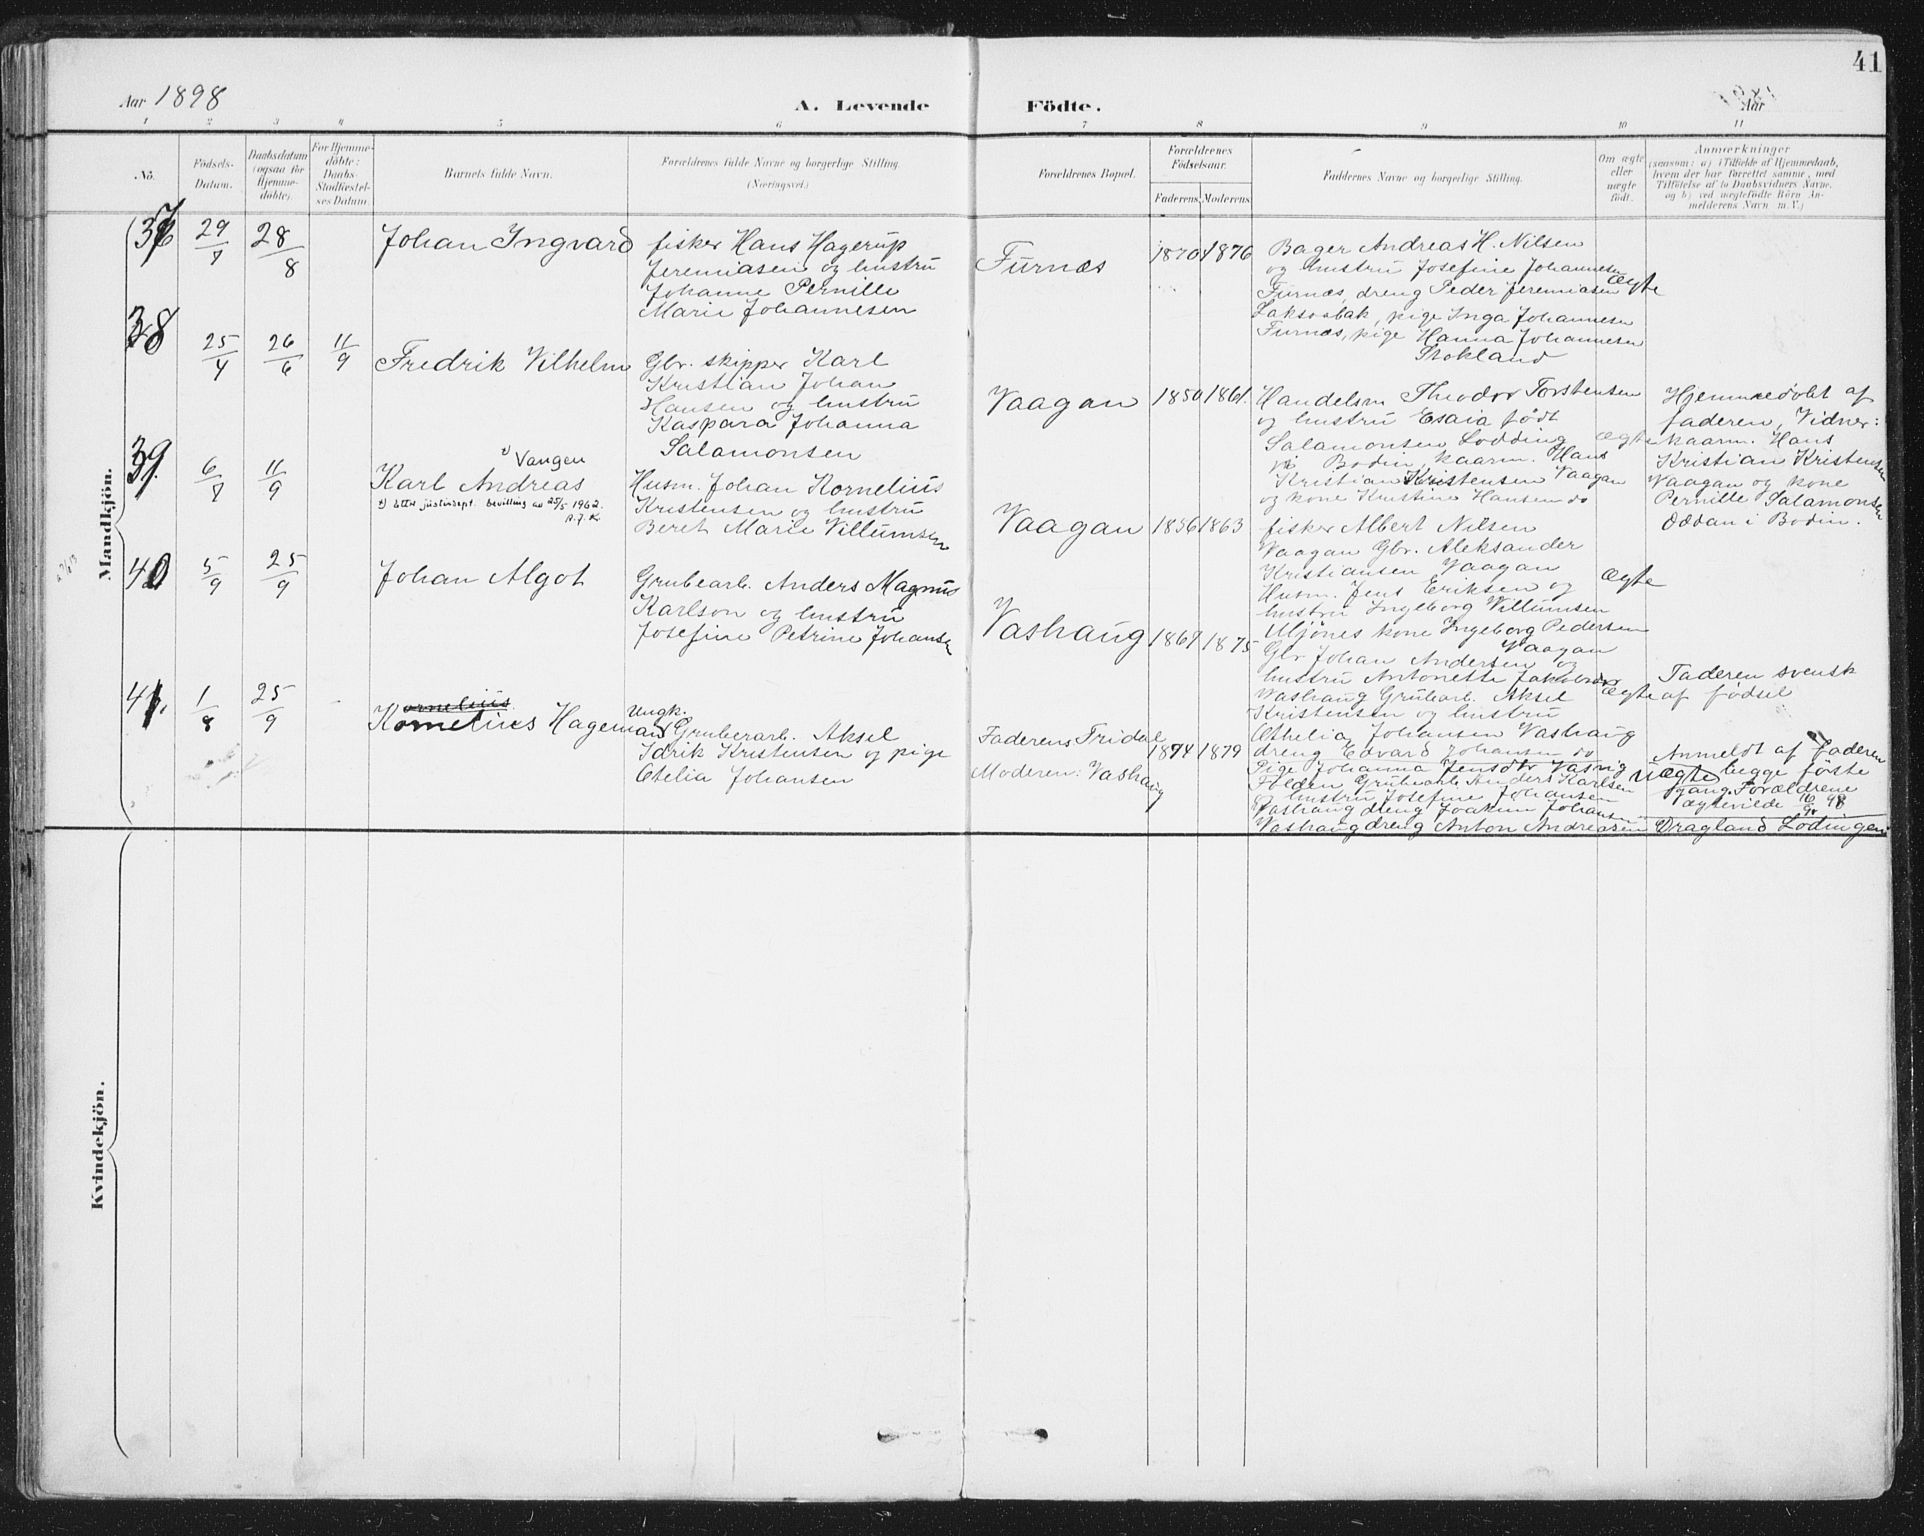 41
Aar 1898
A. Levende Födte.
Aar
1 2 3 4 5 6 7 8 9 10 11
No.
Födsels-
Datum.
Daabsdatum
(ogsaa for
Hjemme-
döbte).
For Hjemme-
döbte:
Daabs-
Stadfæstel-
ses Datum.
Barnets fulde Navn.
Forældrenes fulde Navne og borgerlige Stilling.
(Næringsvei.)
Forældrenes Bopæl.
Forældrenes
Födselsaar.
Faderens. Moderens.
Faddernes Navne og borgerlige Stilling.
Om ægte
eller
uægte
födt.
Anmærkninger
(saasom: a) i Tilfælde af Hjemmedaab,
hvem der har forrettet samme, med
Tilföielse af to Daabsvidners Navne,
og b) ved uægtefödte Börn An-
melderens Navn m. V.)
Mandkjön.
37
29/7
28/8
Johan Ingvard
fisker Hans Hagerup
Jeremiasen og hustru
Johanne Pernille
Marie Johannesen
Furnæs
1870 1876
Bager Andreas H. Nilsen
og hustru Josefine Johannesen
Furnæs, dreng Peder Jeremiasen
Laksosbak, pige Inga Johannesen
Furnæs, pige Hanna Johannesen
Stokland
ægte
38
25/4
26/6
11/9
Fredrik Vilhelm
Gbr. skipper Karl
Kristian Johan
Hansen og hustru
Kaspara Johanna
Salamonsen
Vaagan
1850 1861.
Handelsm Theodor Torstensen
og hustru Esaia født
Salamonsen Lødding
Bodin kaarm. Hans
Kristian Kristensen Vaagan
og kone Kristine Hansen do
ægte
Hjemmedøbt af
faderen, Vidner:
kaarm. Hans
Kristian Kristensen
Vaagan og kone
Pernille Salamonsen
Oddan i Bodin.
39.
6/7
11/9
1) Vangen
Karl Andreas
1) etter justisdept. bevilling av 25/5 1962.
A.J.K.
Husm. Johan Kornelius
Kristensen og hustru
Beret Marie Villumsen
Vaagan
1856 1863
fisker Albert Nilsen
Vaagan Gbr. Aleksander
Kristiansen Vaagan
Husm. Jens Eriksen og
hustru Ingeborg Villumsen
Mjønes kone Ingeborg Pedersen
Vaagan
ægte
40
5/9
25/9
Johan Algot
Grubearb. Anders Magnus
Karlson og hustru
Josefine Petrine Johansen
Vashaug
1869 1875
Gbr Johan Andersen og
hustru Antonette Jakobsdtr
Vashaug Grubearb. Aksel
Kristensen og hustru
Othelia Johansen Vashaug
dreng Edvard Johansen do
ægte
Faderen svensk
af fødsel
41.
1/8
25/9
ornelius
Kornelius Hageman
Ungk.
Gruberarb. Aksel
Idrik Kristensen og pige
Otelia Johansen
Faderens Fridal
Moderen: Vashaug
1874 1879
Pige Johanna Jensdtr Vasvig
Folden Grubearb Anders Karlsen
og hustru Josefine Johansen
Vashaug dreng Joakim Johansen
Vashaug dreng Anton Andreasen
uægte
Anmeldt af faderen
begge første
gang. Forældrene
ægteviede 16/9 98
Dragland Lödingen
Kvindekjön.